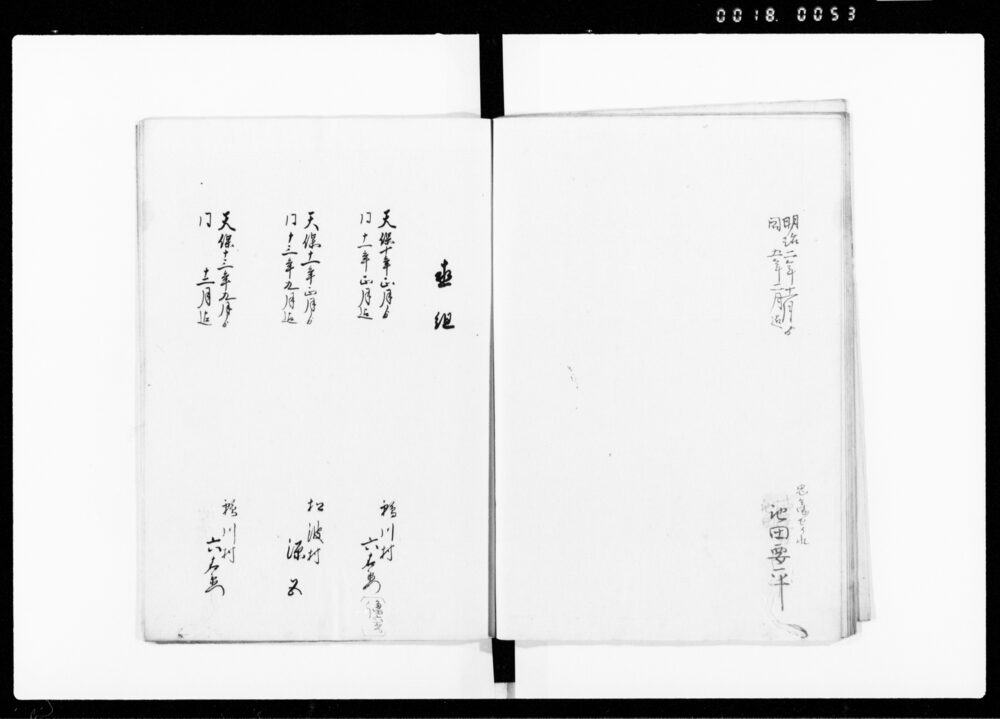 0018.0053
明治二年十一月ゟ
同五年二月迄
池田要平
組
天保十年正月ゟ
同十一年正月迄
川村
六右衛門
天保十一年正月ゟ
同十三年九月迄
松波村
源五
天保十三年九月ゟ
同十二月迄
川村
六右衛門